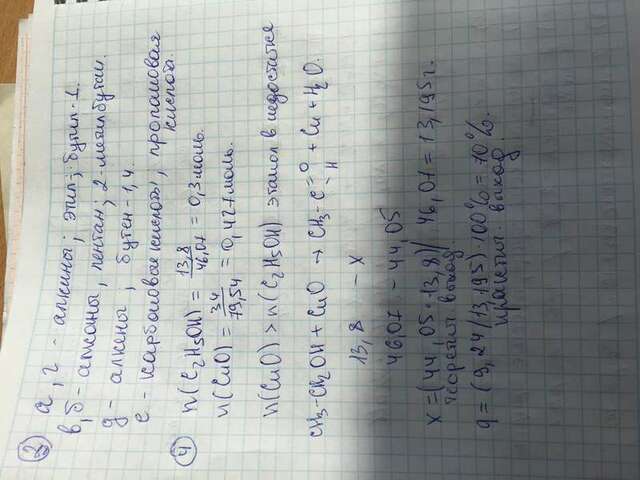 ② а, г - алкины; этил; бутил-1.
в, б - алканы, пентан; 2-метилбутан.
д - алкены, бутен-1,4.
е - карбоновые кислоты, пропановая
кислота.
④ n(C₂H₅OH) = 13,8/46,07 = 0,3 моль.
n(CuO) = 34/79,54 = 0,427 моль.
n(CuO) > n(C₂H₅OH) этанол в недостатке
CH₃-CH₂OH + CuO → CH₃-C=O-H + Cu + H₂O.
13,8 - x
46,07 - 44,05
x = (44,05·13,8)/46,07 = 13,195 г.
теоретич. выход.
q = (9,24/13,195)·100% = 70%.
практич. выход.